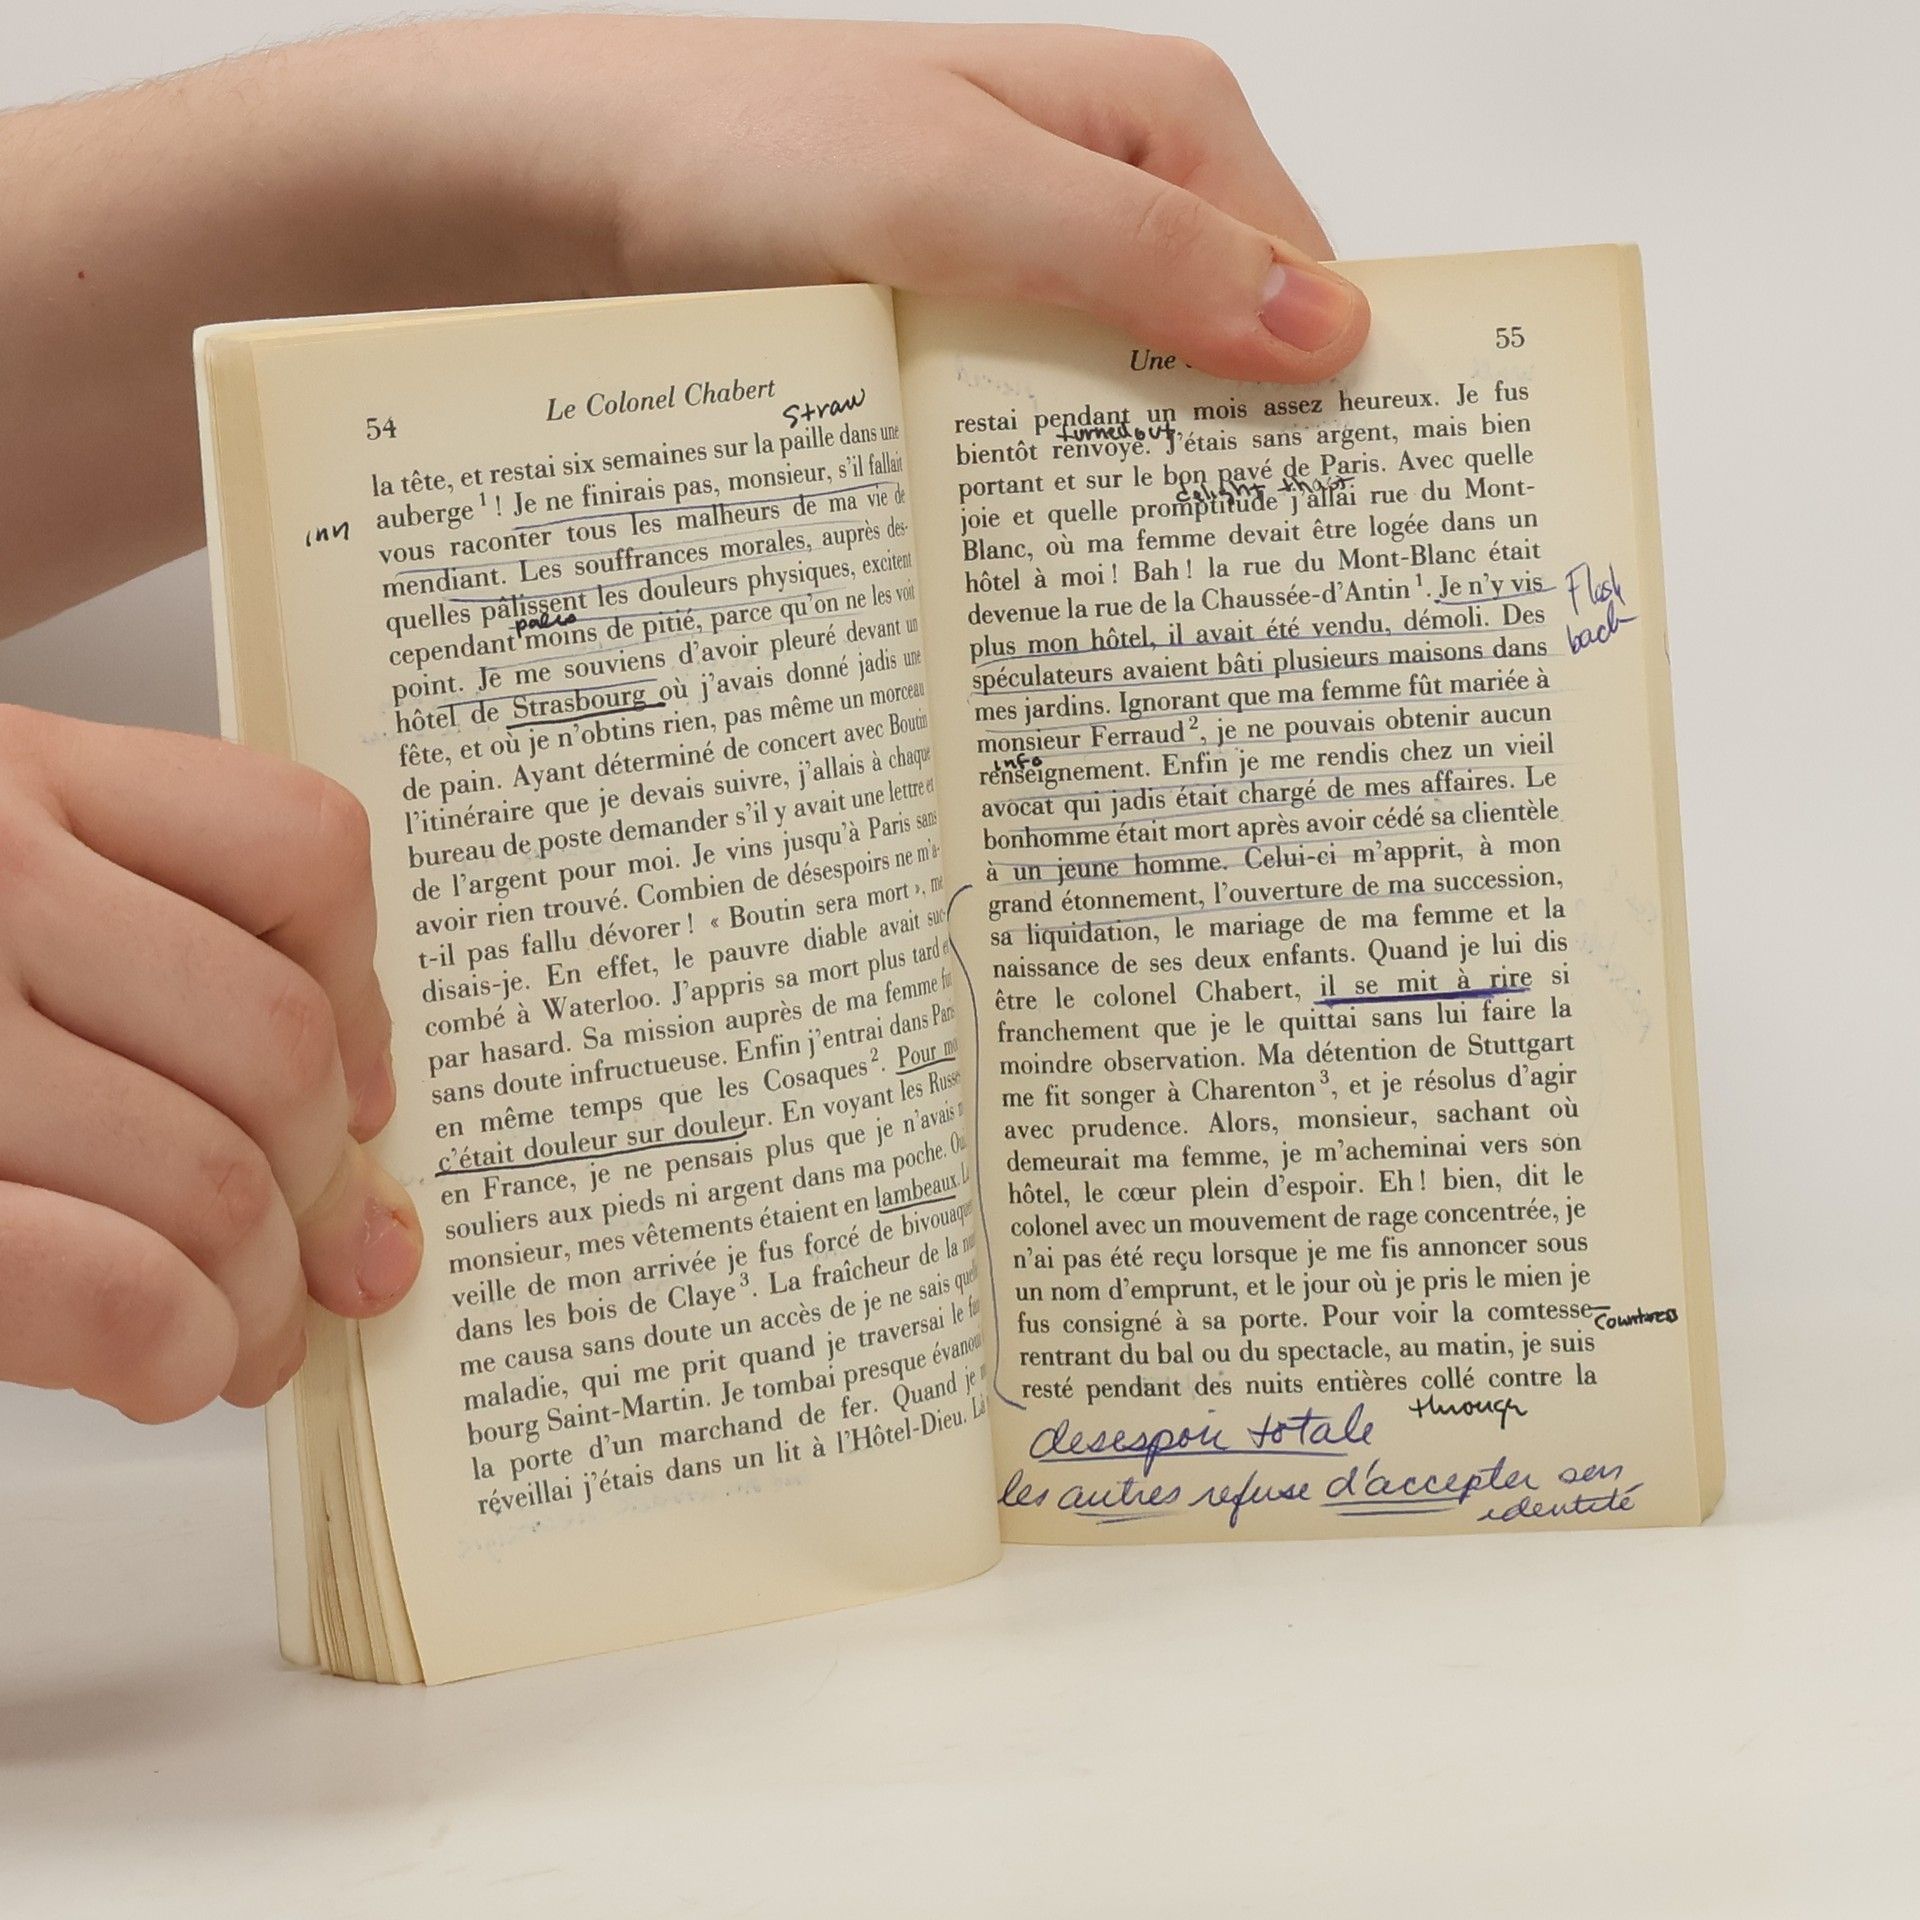 54
Le Colonel Chabert
straw
la tête, et restai six semaines sur la paille dans une
auberge 1 ! Je ne finirais pas, monsieur, s'il fallait
inn
vous raconter tous les malheurs de ma vie de
mendiant. Les souffrances morales, auprès des-
quelles pâlissent les douleurs physiques, excitent
cependant moins de pitié, parce qu'on ne les voit
point. Je me souviens d'avoir pleuré devant un
hôtel de Strasbourg où j'avais donné jadis une
fête, et où je n'obtins rien, pas même un morceau
de pain. Ayant déterminé de concert avec Boutin
l'itinéraire que je devais suivre, j'allais à chaque
bureau de poste demander s'il y avait une lettre et
de l'argent pour moi. Je vins jusqu'à Paris sans
avoir rien trouvé. Combien de désespoirs ne m'a-
t-il pas fallu dévorer ! « Boutin sera mort », me
disais-je. En effet, le pauvre diable avait suc-
combé à Waterloo. J'appris sa mort plus tard et
par hasard. Sa mission auprès de ma femme fut
sans doute infructueuse. Enfin j'entrai dans Paris
en même temps que les Cosaques 2. Pour mo
c'était douleur sur douleur. En voyant les Russes
en France, je ne pensais plus que je n'avais n
souliers aux pieds ni argent dans ma poche. Oui
monsieur, mes vêtements étaient en lambeaux. L
veille de mon arrivée je fus forcé de bivouaque
dans les bois de Claye 3. La fraîcheur de la nu
me causa sans doute un accès de je ne sais quel
maladie, qui me prit quand je traversai le fau
bourg Saint-Martin. Je tombai presque évanou
la porte d'un marchand de fer. Quand je m
réveillai j'étais dans un lit à l'Hôtel-Dieu. Là
Une
55
restai pendant un mois assez heureux. Je fus
turned out
bientôt renvoyé. J'étais sans argent, mais bien
portant et sur le bon pavé de Paris. Avec quelle
joie et quelle promptitude j'allai rue du Mont-
Blanc, où ma femme devait être logée dans un
hôtel à moi ! Bah ! la rue du Mont-Blanc était
devenue la rue de la Chaussée-d'Antin 1. Je n'y vis
Flash
back
plus mon hôtel, il avait été vendu, démoli. Des
spéculateurs avaient bâti plusieurs maisons dans
mes jardins. Ignorant que ma femme fût mariée à
monsieur Ferraud 2, je ne pouvais obtenir aucun
info
renseignement. Enfin je me rendis chez un vieil
avocat qui jadis était chargé de mes affaires. Le
bonhomme était mort après avoir cédé sa clientèle
à un jeune homme. Celui-ci m'apprit, à mon
grand étonnement, l'ouverture de ma succession,
sa liquidation, le mariage de ma femme et la
naissance de ses deux enfants. Quand je lui dis
être le colonel Chabert, il se mit à rire si
franchement que je le quittai sans lui faire la
moindre observation. Ma détention de Stuttgart
me fit songer à Charenton 3, et je résolus d'agir
avec prudence. Alors, monsieur, sachant où
demeurait ma femme, je m'acheminai vers son
hôtel, le cœur plein d'espoir. Eh ! bien, dit le
colonel avec un mouvement de rage concentrée, je
n'ai pas été reçu lorsque je me fis annoncer sous
un nom d'emprunt, et le jour où je pris le mien je
fus consigné à sa porte. Pour voir la comtesse
countess
rentrant du bal ou du spectacle, au matin, je suis
resté pendant des nuits entières collé contre la
through
desespoir totale
les autres refuse d'accepter son
identité